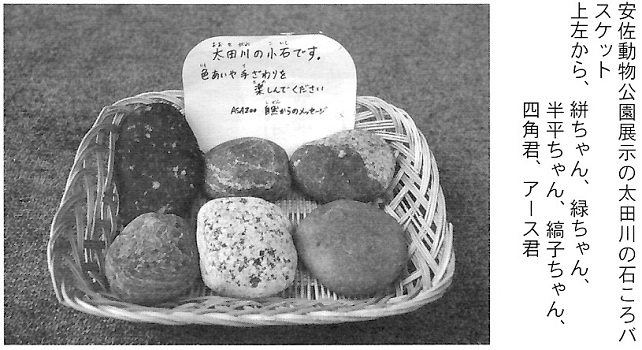 安佐動物公園展示の太田川の石ころバ
スケット
上左から、絣ちゃん、緑ちゃん、
半平ちゃん、縞子ちゃん、
四角君、アース君
おおたがわ こいし
太田川の小石です。
いろ て
色あいや手ざわりを
たの
楽しんでください
しぜん
ASAZOO 自然からのメッセージ